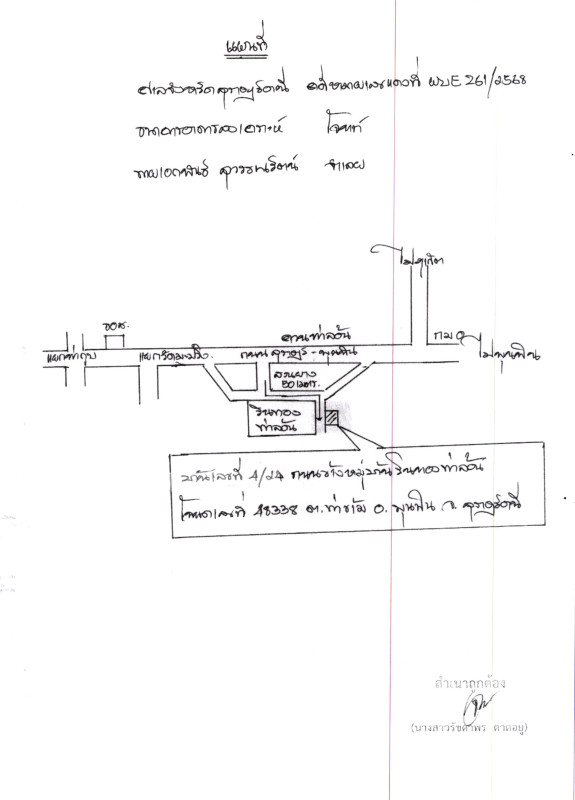 แผนที่
ศาลจังหวัดสุราษฎร์ธานี คดีหมายเลขแดงที่ ผบE 261/2568
ธนาคารอาคารสงเคราะห์ โจทก์
นายเอกพันธ์ สุวรรณรัตน์ จำเลย
ไปภูเก็ต
ธอส.
กม 0
ไปพุนพิน
แยกท่ากูบ
ถนน สุราษฎร์ - พุนพิน
สวนยาง
50 เมตร.
รินทอง
บ้านเลขที่ 4/24 ถนนข้างหมู่บ้านรินทอง
โฉนดเลขที่ 48338 ต.ท่าข้าม อ.พุนพิน จ.สุราษฎร์ธานี
สำเนาถูกต้อง